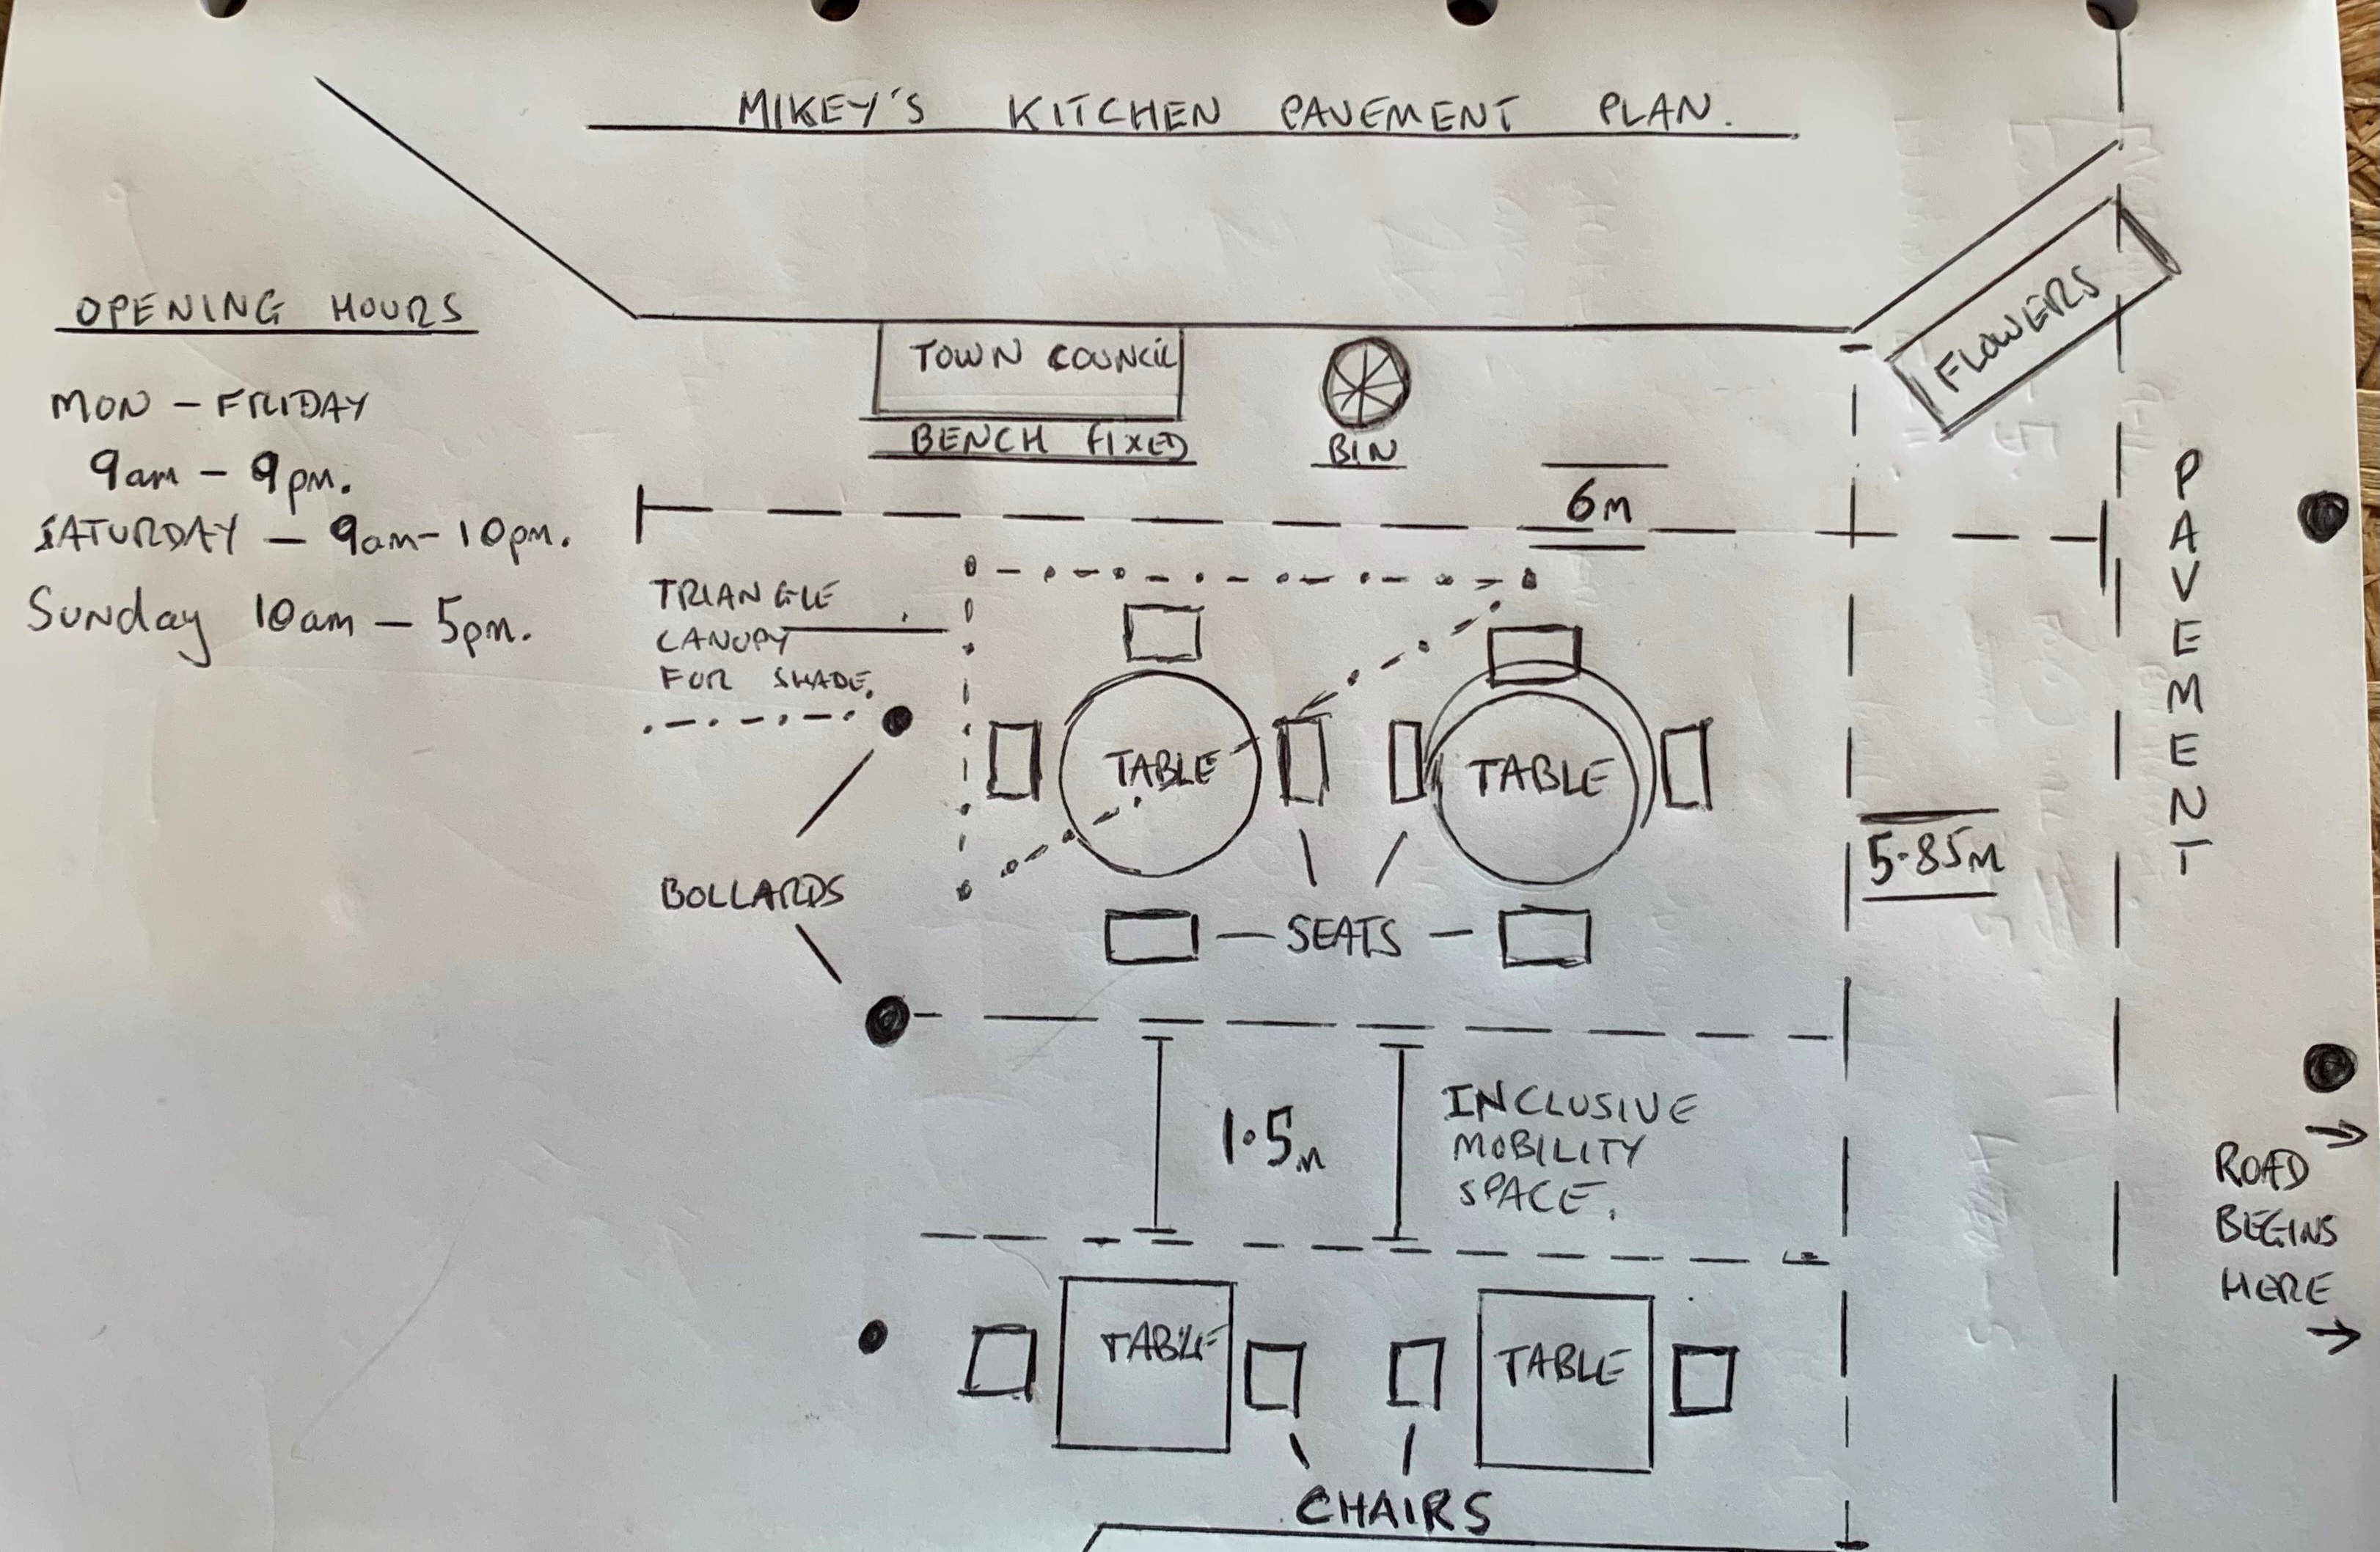 MIKEY'S KITCHEN PAVEMENT PLAN.
OPENING HOURS
MON - FRIDAY
9am - 9pm.
SATURDAY - 9am - 10pm.
Sunday 10am - 5pm.
TOWN COUNCIL
BENCH FIXED
BIN
FLOWERS
6m
TRIANGLE
CANOPY
FOR SHADE.
PAVEMENT
TABLE
TABLE
5.85m
BOLLARDS
SEATS
1.5m
INCLUSIVE
MOBILITY
SPACE.
ROAD
BEGINS
HERE
TABLE
TABLE
CHAIRS